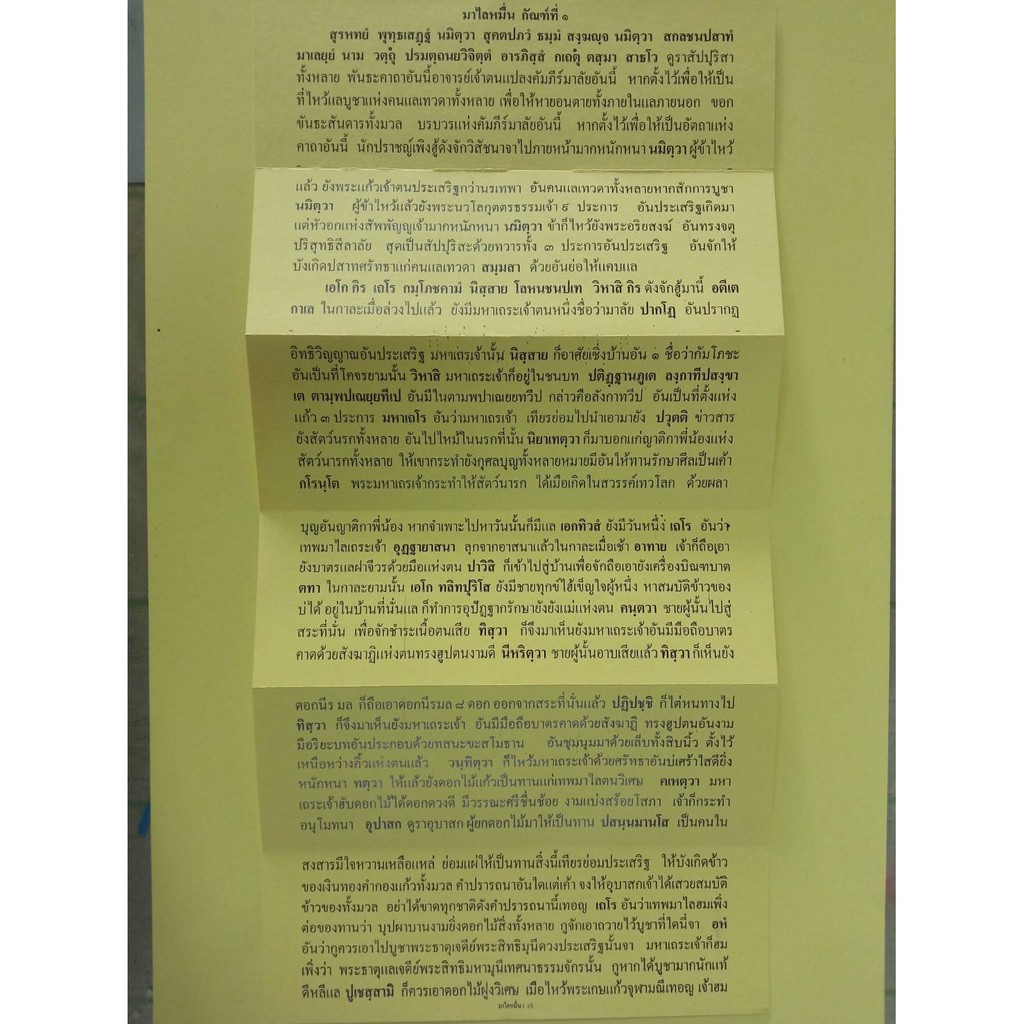 มาไลหมื่น กัณฑ์ที่ ๑
สุรหทยํ พุทฺธเสฏฺฐํ นมิตฺวา สุคตปภวํ ธมฺมํ สงฺฆญฺจ นมิตฺวา สกลชนปสาทํ
มาเลยฺยํ นาม วตฺถุํ ปรมตฺถนยวิจิตฺตํ อารภิสฺสํ กเถตุํ ตสฺมา สาธโว ดูราสัปปุริสา
ทั้งหลาย พันธะคาถาอันนี้อาจารย์เจ้าตนแปลงคัมภีร์มาลัยอันนี้ หากตั้งไว้เพื่อให้เป็น
ที่ไหว้แลบูชาแห่งคนแลเทวดาทั้งหลาย เพื่อให้หายอนตายทั้งภายในแลภายนอก ขอก
ขันธะสันดารทั้งมวล บรบวรแห่งคัมภีร์มาลัยอันนี้ หากตั้งไว้เพื่อให้เป็นอัตถาแห่ง
คาถาอันนี้ นักปราชญ์เพิงฮู้ดังจักวิสัชนาจาไปภายหน้ามากหนักหนา นมิตฺวา ผู้ข้าไหว้
แล้ว ยังพระแก้วเจ้าตนประเสริฐกว่านรเทพา อันคนแลเทวดาทั้งหลายหากสักการบูชา
นมิตฺวา ผู้ข้าไหว้แล้วยังพระนวโลกุตตรธรรมเจ้า ๙ ประการ อันประเสริฐเกิดมา
แต่หัวอกแห่งสัพพัญญูเจ้ามากหนักหนา นมิตฺวา ข้าก็ไหว้ยังพระอริยสงฆ์ อันทรงจตุ
ปริสุทธิสีลาลัย สุดเป็นสัปปุริสะด้วยทวารทั้ง ๓ ประการอันประเสริฐ อันจักให้
บังเกิดปสาทศรัทธาแก่คนแลเทวดา สมฺมสา ด้วยอันย่อให้แคบแล
เอโก กิร เถโร กมฺโภชคามํ นิสฺสาย โลหนชนปเท วิหาสิ กิร ดังจักฮู้มานี้ อตีเต
กาเล ในกาละเมื่อล่วงไปแล้ว ยังมีมหาเถระเจ้าตนหนึ่งชื่อว่ามาลัย ปากโฏ อันปรากฏ
อิทธิวิญญาณอันประเสริฐ มหาเถระเจ้านั้น นิสฺสาย ก็อาศัยเซิ่งบ้านอัน ๑ ชื่อว่ากัมโภชะ
อันเป็นที่โคจรยามนั้น วิหาสิ มหาเถระเจ้าก็อยู่ในชนบท ปติฏฺฐานภูเต ลงฺกาทีปสงฺขา
เต ตามฺพปเณยฺยทีเป อันมีในตามพปาเณยยทวีป กล่าวคือลังกาทวีป อันเป็นที่ตั้งแห่ง
แก้ว ๓ ประการ มหาเถโร อันว่ามหาเถรเจ้า เทียรย่อมไปนำเอามายัง ปวุตติ ข่าวสาร
ยังสัตว์นรกทั้งหลาย อันไปไหม้ในนรกที่นั้น นิยาเทตฺวา ก็มาบอกแก่ญาติกาพี่น้องแห่ง
สัตว์นารกทั้งหลาย ให้เขากระทำยังกุศลบุญทั้งหลายหมายมีอันให้ทานรักษาศีลเป็นเค้า
กโรนฺโต พระมหาเถรเจ้ากระทำให้สัตว์นารก ได้เมือเกิดในสวรรค์เทวโลก ด้วยผลา
บุญอันญาติกาพี่น้อง หากจำเพาะไปหาวันนั้นก็มีแล เอกทิวสํ ยังมีวันหนึ่ง เถโร อันว่า
เทพมาไลเถระเจ้า อุฏฺฐายาสนา ลุกจากอาสนาแล้วในกาละเมื่อเช้า อาทาย เจ้าก็ถือเอา
ยังบาตรแลฝาจีวรด้วยมือแห่งตน ปาวิสิ ก็เข้าไปสู่บ้านเพื่อจักถือเอายังเครื่องบิณฑบาต
ตทา ในกาละยามนั้น เอโก ทลิทปุริโส ยังมีชายทุกข์ไฮ้เข็ญใจผู้หนึ่ง หาสมบัติข้าวของ
บ่ได้ อยู่ในบ้านที่นั่นแล ก็ทำการอุปัฏฐากรักษายังยังแม่แห่งตน คนฺตวา ชายผู้นั้นไปสู่
สระที่นั่น เพื่อจักชำระเนื้อตนเสีย ทิสฺวา ก็จึงมาเห็นยังมหาเถระเจ้าอันมีมือถือบาตร
คาดด้วยสังฆาฏิแห่งตนทรงฮูปตนงามดี นีหริตฺวา ชายผู้นั้นอาบเสียแล้ว ทิสฺวา ก็เห็นยัง
ดอกนีรมล ก็ถือเอาดอกนีรมล ๘ ดอก ออกจากสระที่นั่นแล้ว ปฏิปชฺชิ ก็ไต่หนทางไป
ทิสฺวา ก็จึงมาเห็นยังมหาเถระเจ้า อันมีมือถือบาตรคาดด้วยสังฆาฏิ ทรงฮูปตนอันงาม
มีอริยะบทอันประกอบด้วยทสนะขะสโมธาน อันชุมนุมมาด้วยเล็บทั้งสิบนิ้ว ตั้งไว้
เหนือหว่างคิ้วแห่งตนแล้ว วนฺทิตฺวา ก็ไหว้มหาเถระเจ้าด้วยศรัทธาอันบ่เศร้าใสดียิ่ง
หนักหนา ทตฺวา ให้แล้วยังดอกไม้แก้วเป็นทานแก่เทพมาไลตนวิเศษ คเหตฺวา มหา
เถระเจ้าฮับดอกไม้ได้ดอกดวงดี มีวรรณะศรีชื่นช้อย งามแบ่งสร้อยโสภา เจ้าก็กระทำ
อนุโมทนา อุปาสก ดูราอุบาสก ผู้ยกดอกไม้มาให้เป็นทาน ปสนฺนมานโส เป็นคนใน
สงสารมีใจหวานเหลือแหล่ ย่อมแผ่ให้เป็นทานสิ่งนี้เทียรย่อมประเสริฐ ให้บังเกิดข้าว
ของเงินทองคำกองแก้วทั้งมวล คำปรารถนาอันใดแต่เค้า จงให้อุบาสกเจ้าได้เสวยสมบัติ
ข้าวของทั้งมวล อย่าได้ขาดทุกชาติดังคำปรารถนานี้เทอญ เถโร อันว่าเทพมาไลฮมเพิ่ง
ต่อของทานว่า บุปผาบานงามยิ่งดอกไม้สิ่งทั้งหลาย กูจักเอาถวายไว้บูชาที่ใดนี่จา อหํ
อันว่ากูควรเอาไปบูชาพระธาตุเจดีย์พระสิทธิมุนีดวงประเสริฐนั้นจา มหาเถระเจ้าก็ฮม
เพิ่งว่า พระธาตุแลเจดีย์พระสิทธิมหามุนีเทศนาธรรมจักรนั้น กูหากได้บูชามากนักแท้
ดีหลีแล ปูเชสฺสามิ ก็ควรเอาดอกไม้ฝูงวิเศษ เมือไหว้พระเกษแก้วจุฬามณีเทอญ เจ้าฮม